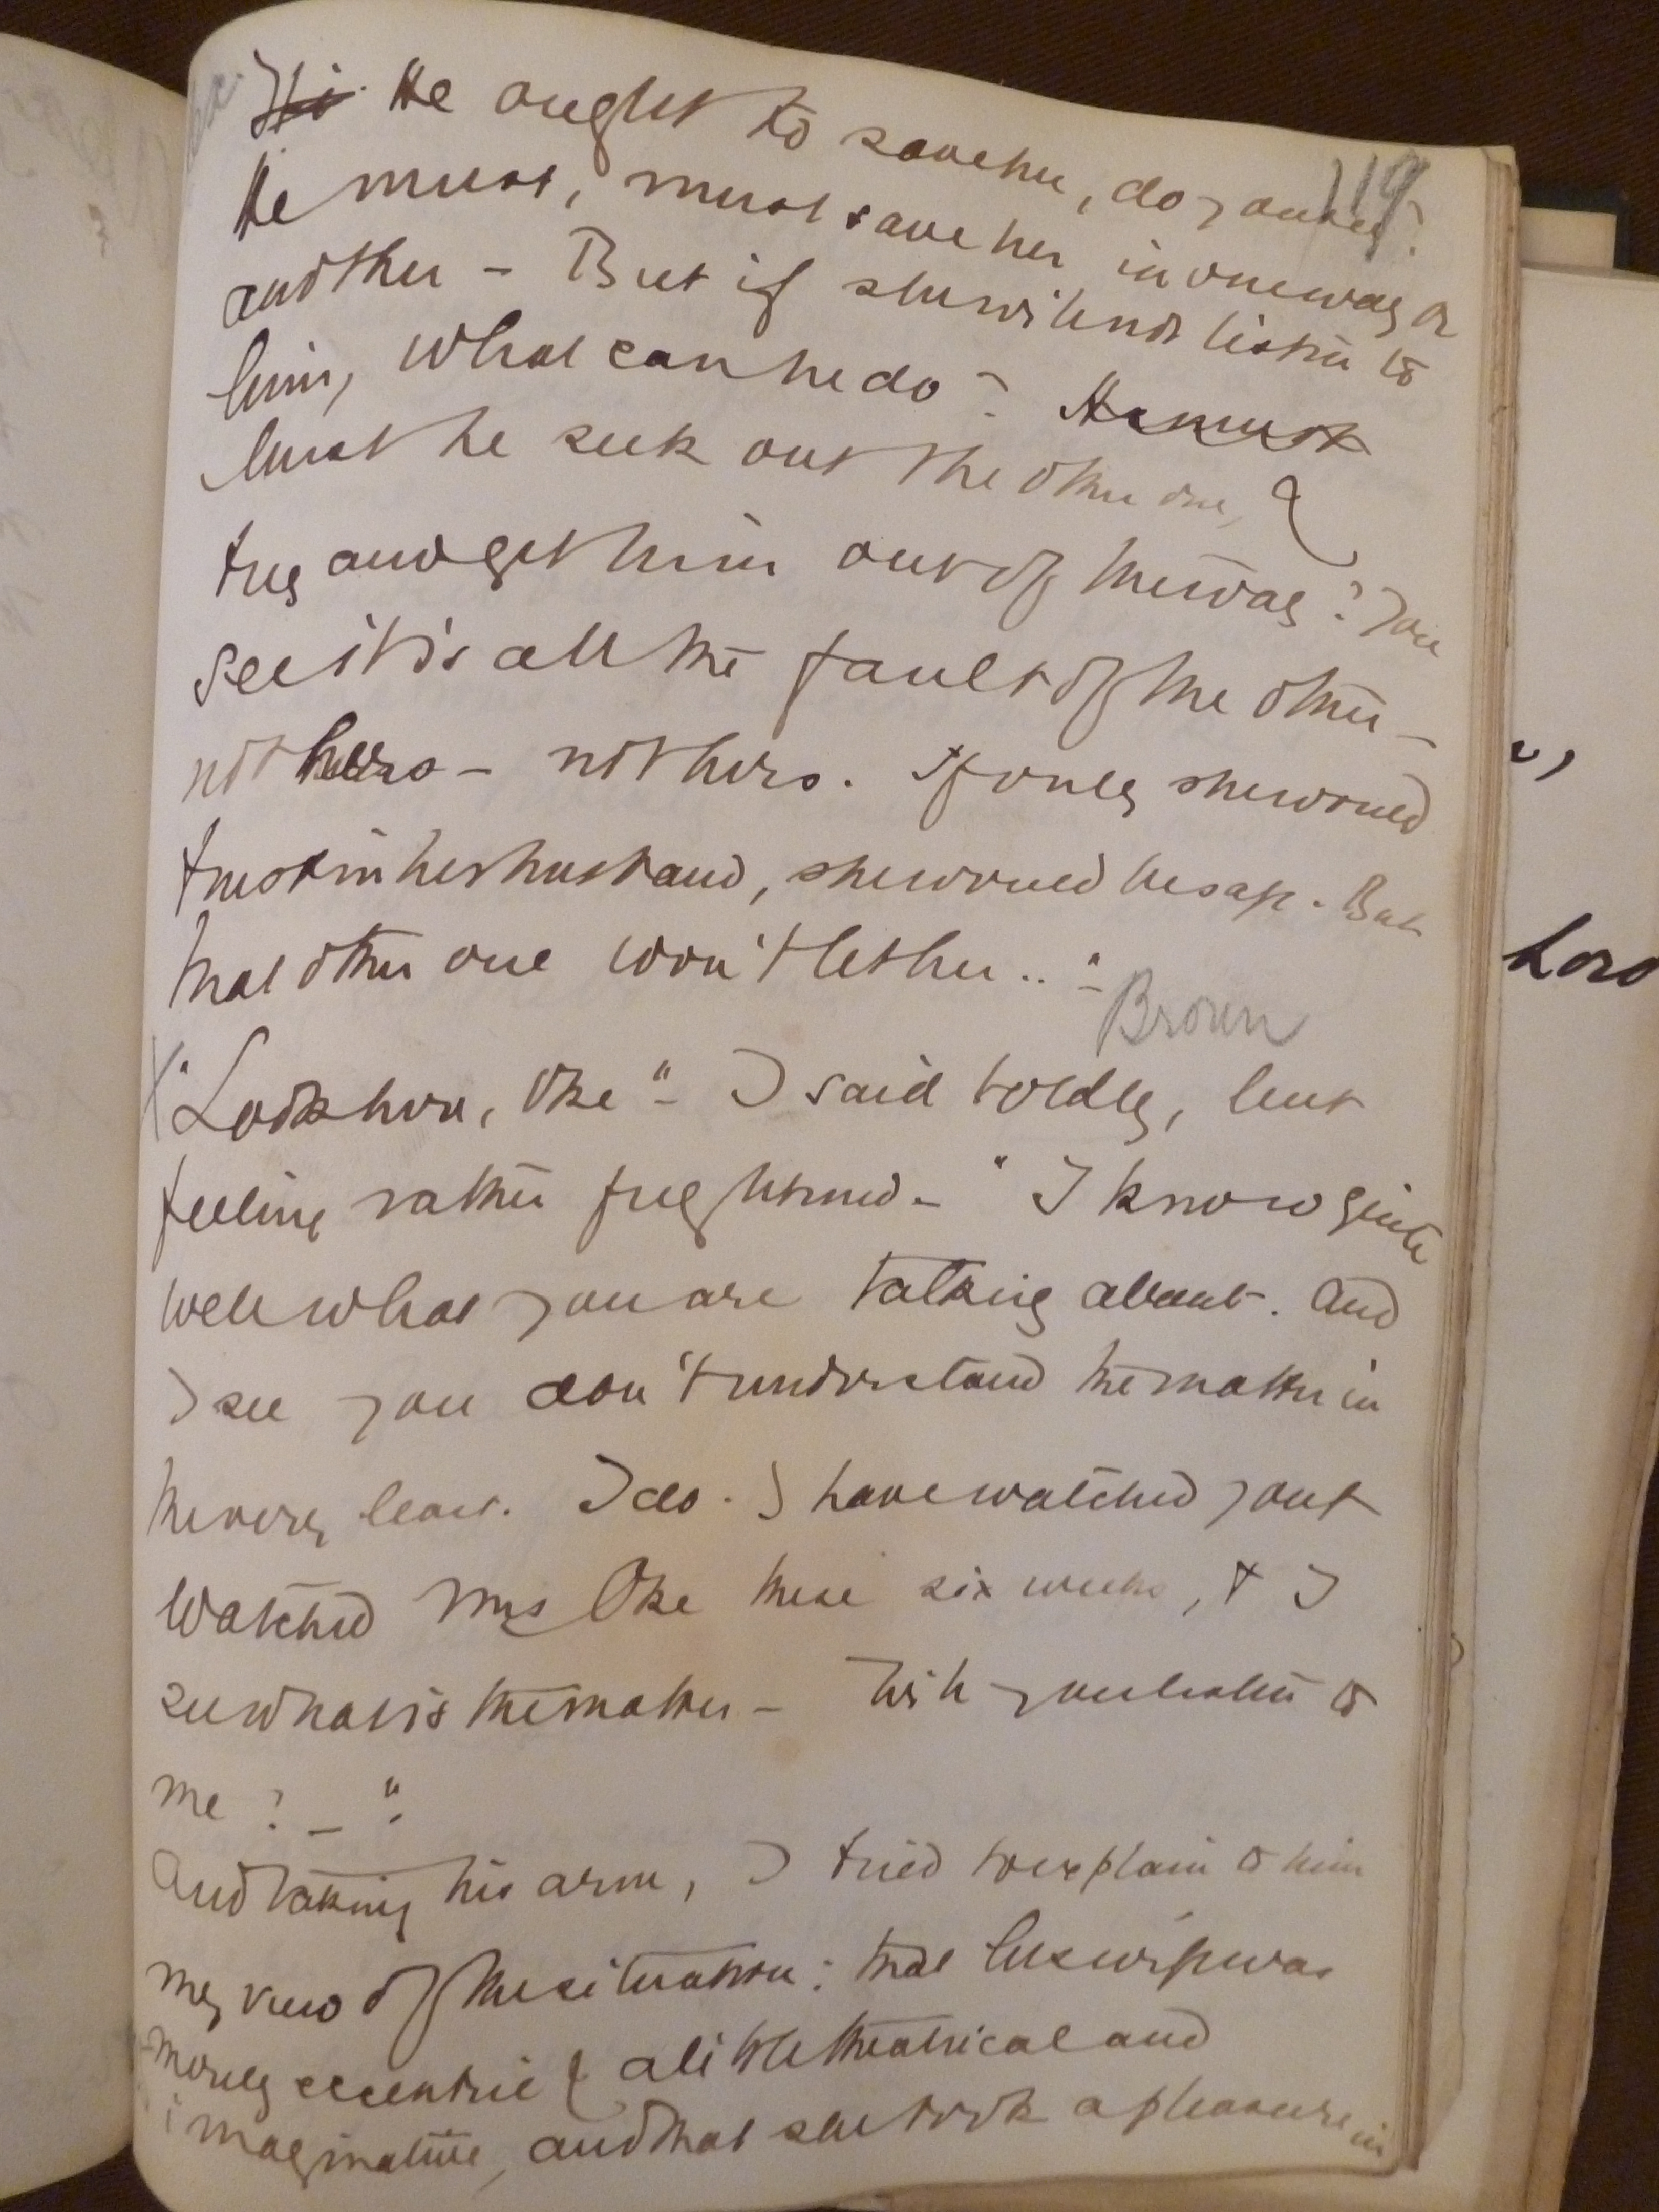 119
He ought to save her, do you see?
He must, must save her in one way or
another – But if she will not listen to
him, what can he do? He must
Must he seek out the other one, &
try and get him out of the way? You
see it is all the fault of the other –
not hers – not hers. If only she would
trust in her husband, she would be safe. But
that other one won't let her.. " –
Brown
"Look here, Oke" – I said boldly, but
feeling rather frightened – "I know quite
well what you are talking about. And
I see you don't understand the matter in
the very least. I do. I have watched you &
watched Mrs Oke these six weeks, & I
see what is the matter – Will you listen to
me? – "
And taking his arm, I tried to explain to him
my view of the situation: that his wife was
merely eccentric & a little theatrical and
imaginative, and that she took a pleasure in
Lord